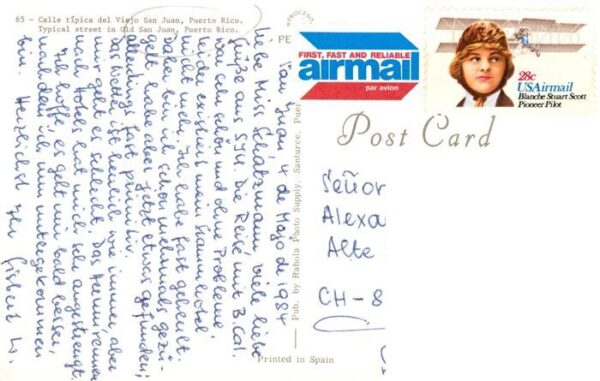 65 - Calle típica del Viejo San Juan, Puerto Rico.
Typical street in Old San Juan, Puerto Rico.
San Juan 4 de Mayo de 1984
Liebe Miss Schätzmann, viele liebe
Grüße aus SJU. Die Reise mit B.Cal.
war schön und ohne Probleme,
leider existiert mein Stammhotel
nicht mehr. Ich habe fast geheult.
Daher bin ich schon mehrmals
habe aber jetzt etwas gefunden;
allerdings fast
Das Wetter ist herrlich wie immer, aber
mir geht es schlecht. Das Herumrennen
nach Hotels hat mich sehr angestrengt.
Ich hoffe, es geht mir bald besser,
nachdem ich nun untergekommen
bin. Herzlichst Ihr Gisbert W.
Pub. by Rahola Photo Supply, Santurce, Puer
Printed in Spain
PE
FIRST, FAST AND RELIABLE
airmail
par avion
28c
USAirmail
Blanche Stuart Scott
Pioneer Pilot
Post Card
Señor
Alexa
Alte
CH-8